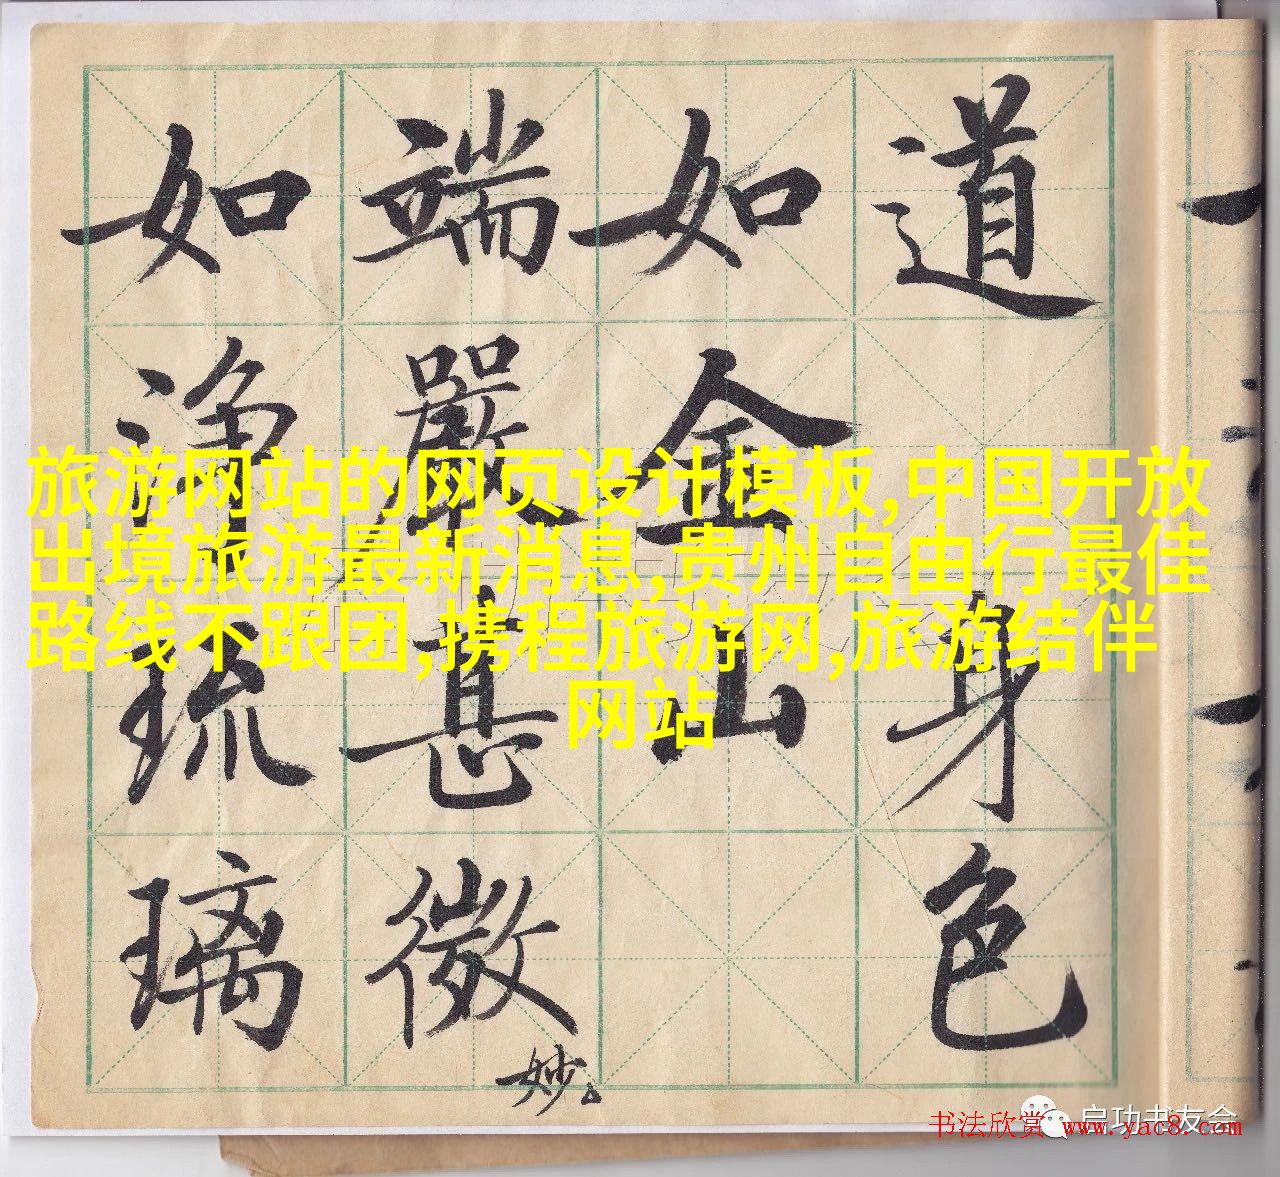 道
身色
如金山
端嚴甚微妙
如淨琉璃
旅游网站的网页设计模板,中国开放
出境旅游最新消息,贵州自由行最佳
路线不跟团,携程旅游网,旅游结伴
网站
启功书友会
书法欣赏 www.yac8.com